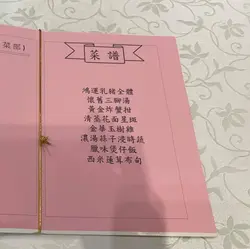 菜部）
菜譜
鴻運乳豬全體
懷舊三腳湯
黃金炸蟹柑
清蒸花面星斑
金華玉樹雞
濃湯孫子浸時蔬
臘味煲仔飯
西米蓮茸布甸